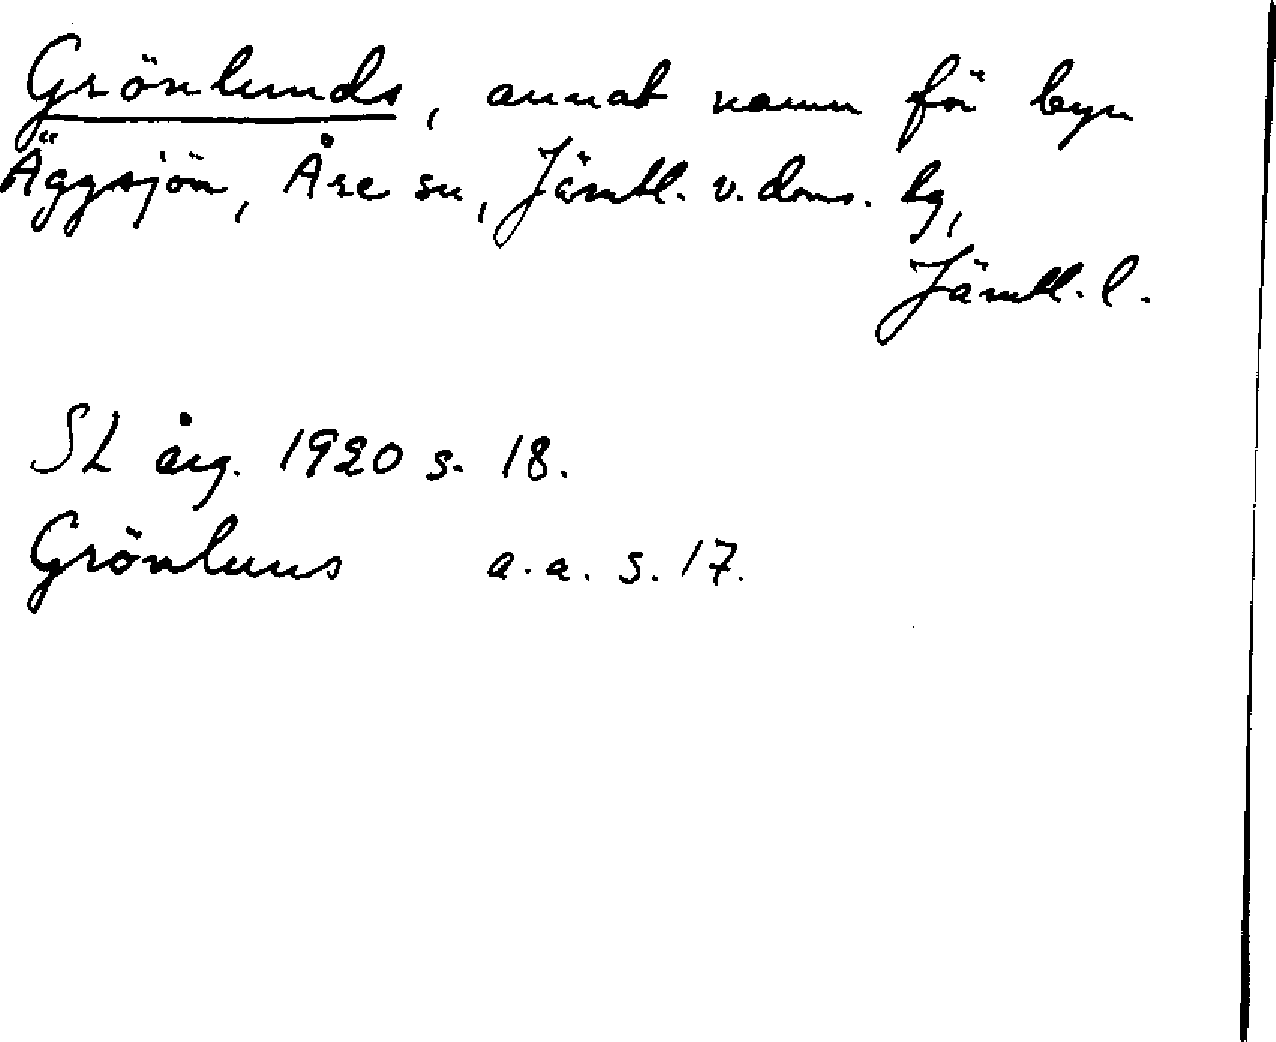 Grönlunds, annat namn för byn
Äggsjön, Åre sn, Jämtl. v. doms. lg,
Jämtl. l.
SL årg. 1920 s. 18.
Grönluns a.a. s. 17.